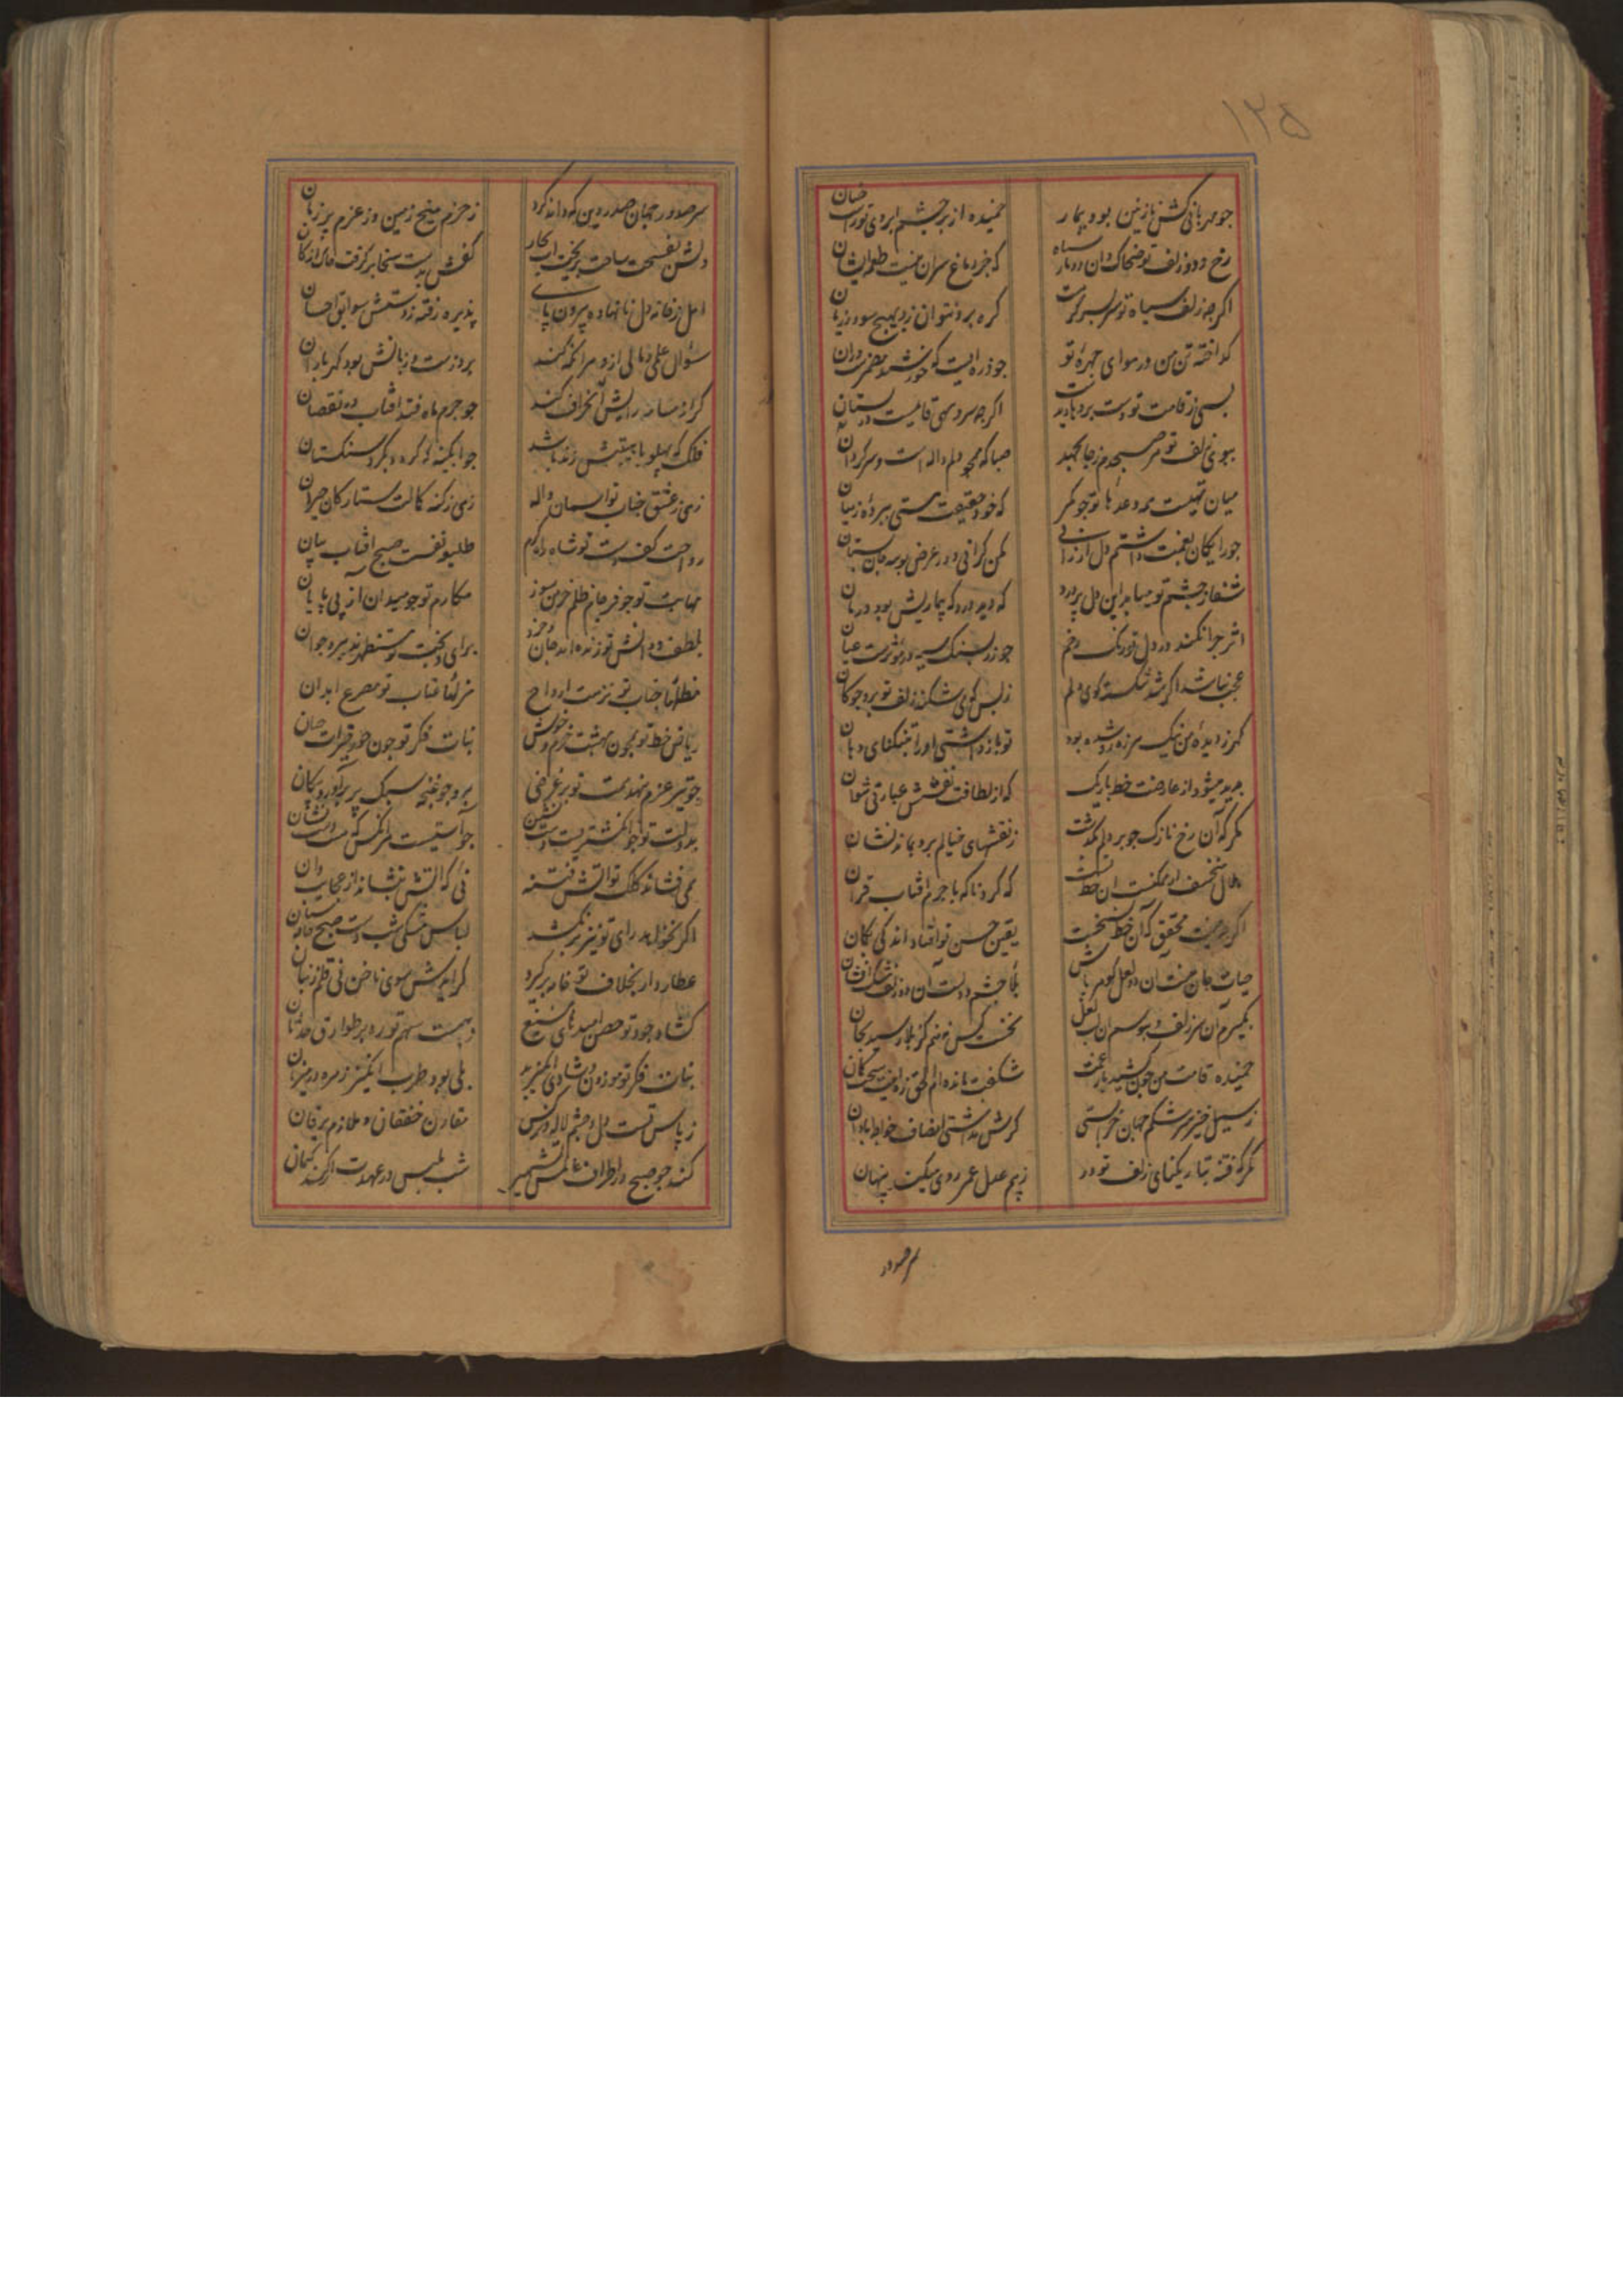 ۱۲۵
جو مهربانی کش نازنین بود بیمار
خمیده از بر چشم ابروی تو زانسان
رخ و دو زلف تو ضحاک وان دو مار سیاه
که جز دماغ سران نیست طعمه ایشان
اگر چه زلف سیاه تو سر بسر گرهست
گره برو نتوان زد بهیچ سود و زیان
گداخته تن من در هوای چهره تو
جو ذره ایست که خورشید
بسی ز قامت تو دست برد باد بدست
اگر چه سرو سهی قایمست در بستان
ببوی زلف تو هر صبحدم ز جا بجهد
صبا که همچو دلم واله است و سرگردان
میان تهیست همه وعدها تو جو کمر
که خود حقیقت هستی نبرده ز میان
جو رایکان بغمت داشتم دل ارزانی
مکن گرانی و در عرض بوسه جان بستان
شفا ز چشم تو مییابد این دل پر درد
که دید درد که بیماریش بود درمان
اثر چرا نکند در دل تو رنگ رخم
جو زر بسنگ سیه در مؤثرست عیان
عجب نباشد اگر شد شکسته کوی دلم
ز بس که می شکند زلف تو برو جوکان
گهر ز دیده من نیک سر زده شده بود
تو باز داشتی او را بتنگنای دهان
پدید میشود از عارضت خط باریک
که از لطافت نقشش عبارتی نتوان
مگر که آن رخ نازک جو بر دلم بگذشت
ز نقشهای خیالم برو بماند نشان
هلال منخسف ار ممکنست آن خط تست
که کرد ناکه با جرم آفتاب قران
اگر چه نیست محقق که آن خط نسخست
یقین حسن تو افتاد اندکی بکمان
حیات جان منست آن دو لعل گوهر پاش
بلا چشم و دلست آن دو زلف مشک افشان
بگیرم آن سر زلف و ببوسم آن لب لعل
نخست کس نه منم کز بلا رسید بجان
خمیده قامت من چون کشید بار غمت
شکفت مانده ام الحق زه ای ضعیف کمان
ز سیل خیز سرشکم جهان خرابستی
گرش نداشتی انصاف خواجه آبادان
مگر که فتنه بتاریکنای زلف تو در
ز بیم عدل عمر روی میکند پنهان
سر صدور
سر صدور جهان صدر دین که داند کرد
ز حزم میخ زمین وز عزم پر زمان
کفش بدست سخا بر گرفت
امل ز خانه دل نانهاده بیرون پای
پذیره رفته ز دستش سوابق احسان
سؤال علمی و مالی ازو هر آنکه کند
برو ز دست و زبانش بود گهر باران
گر از مسامته رایش انحراف کند
جو جرم ماه فتد آفتاب در نقصان
فلک که پهلو با هیبتش زند باشد
جو آبگینه که گردد بگرد سنگستان
زهی ز عشق جناب تو آسمان واله
زهی ز کنه کمالت ستارگان حیران
رواحت کف دست تو شاه راه کرم
طلیعه نفست صبح آفتاب بیان
مهابت تو جو فرجام ظلم خرمن سوز
مکارم تو جو میدان آز بی پایان
بلطف و دانش تو زنده اند جان و خرد
برای و بخت تو مستظهرند پیر و جوان
مظلهٔا جناب تو نزهت ارواح
مزلهٔا عتاب تو مصرع ابدان
ریاض خط تو همچون بهشت خرم و خوش
بنات فکر تو چون حور قاصرات حسان
چو تیر عزم نهد همت تو بر غرضی
برو جو غنچه سبک پر برآورد پیکان
بدولت تو جو انگشتریست دست نشین
جو آستیست هر آنکس که هست
همی فشاند کلک تو آتش فتنه
نئی که آتش بنشاند از عجایب دان
اگر نخواهد رای تو نیز بر نکشد
لباس مشکی شب دست صبح جامه ستان
عطارد ار بخلاف تو خامه بر گیرد
گر آیدش سوی ناخن نی قلم ز بنان
گشاد جود تو حصن امیدهای منیع
ببست سهم تو ره بر طوارق حدثان
بنات فکر تو موزون و شادی انگیزند
بلی بود طرب انگیز زهره در میزان
ز پاس تست دل و چشم لاله و نرگس
مقارن خفقان و ملازم یرقان
کند چو صبح در اطراف عالمش تشهیر
شب ملبس در عهدت ار کند کتمان